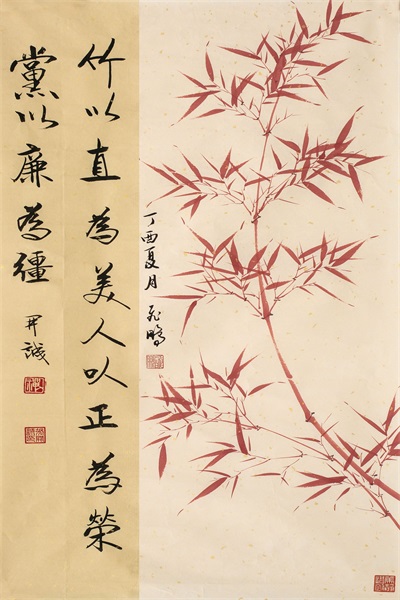 丁酉夏月 飛鵬
竹以直為美人以正為榮
黨以廉為彊 开誠